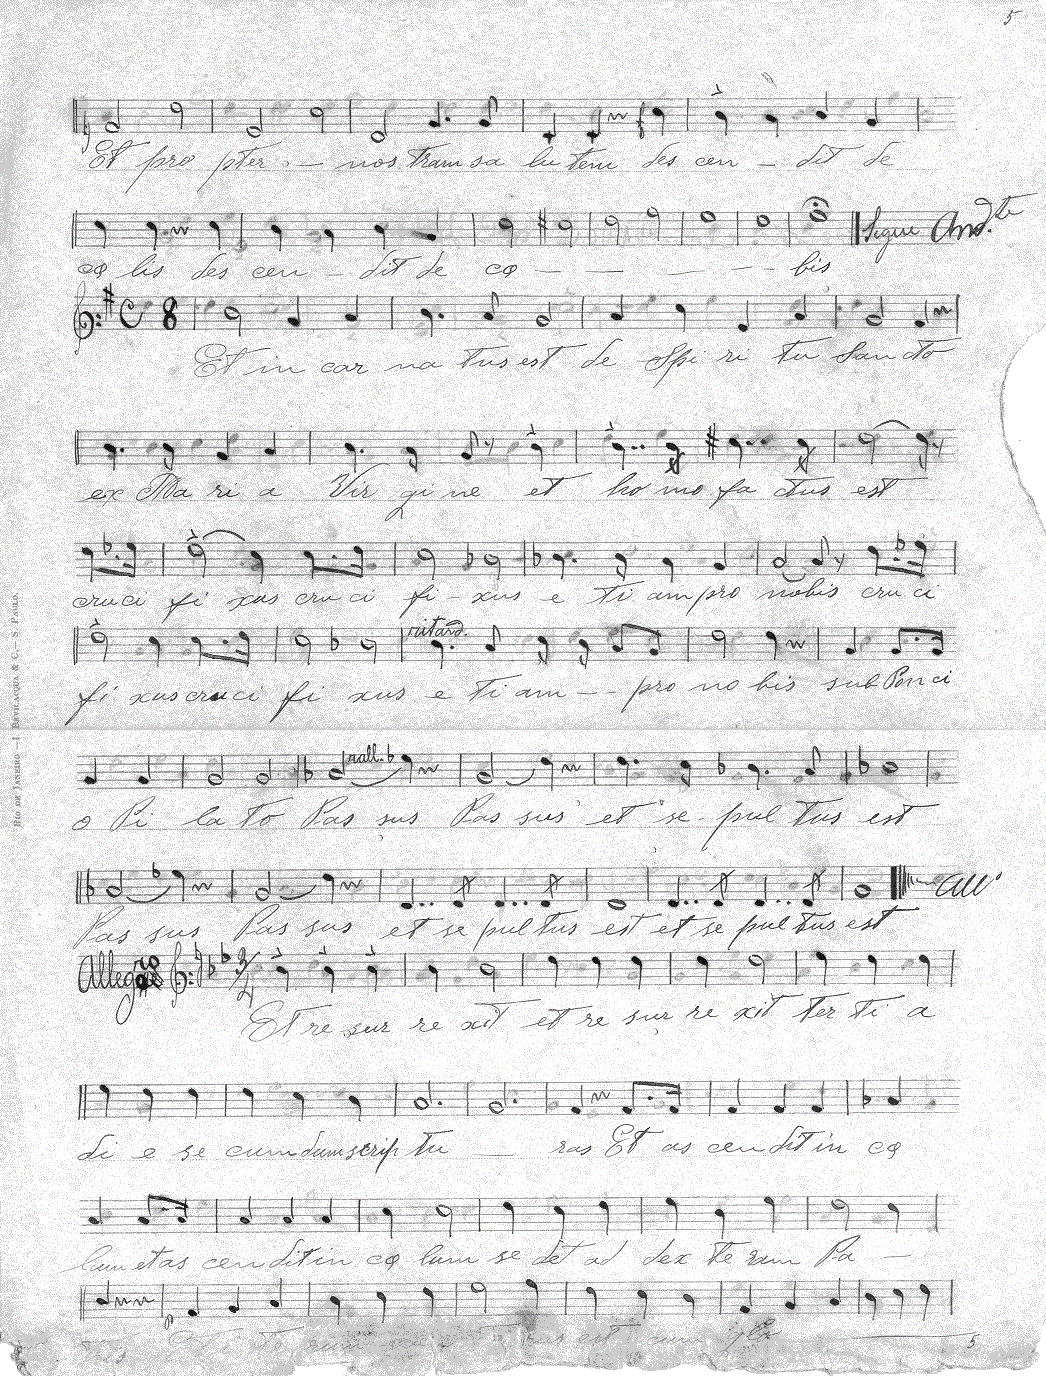 5
Et pro pter - nos tram sa lu tem des cen - dit de
cœ lis des cen - dit de cœ - - - - - bis
Sigue And.te
8
Et in car na tus est de Spi ri tu San cto
ex Ma ri a Vir gi ne et ho mo fa ctus est
cruci fi xus cru ci fi - xus e ti am pro nobis cru ci
ritard.
fi xus cruci fi xus e ti am - - pro no bis sub Ponci
rall.
o Pi la to Pas sus Pas sus et se pul tus est
Pas sus Pas sus et se pul tus est et se pul tus est
All.o
Allegro 3/4
Et re sur re xit et re sur re xit ter ti a
di e se cumdum scrip tu — ras Et as cen dit in cœ
lum et as cen dit in cœ lum se det ad dex te ram Pa —
tris
5
Rio de Janeiro — I. Bevilacqua & C. — S. Paolo.